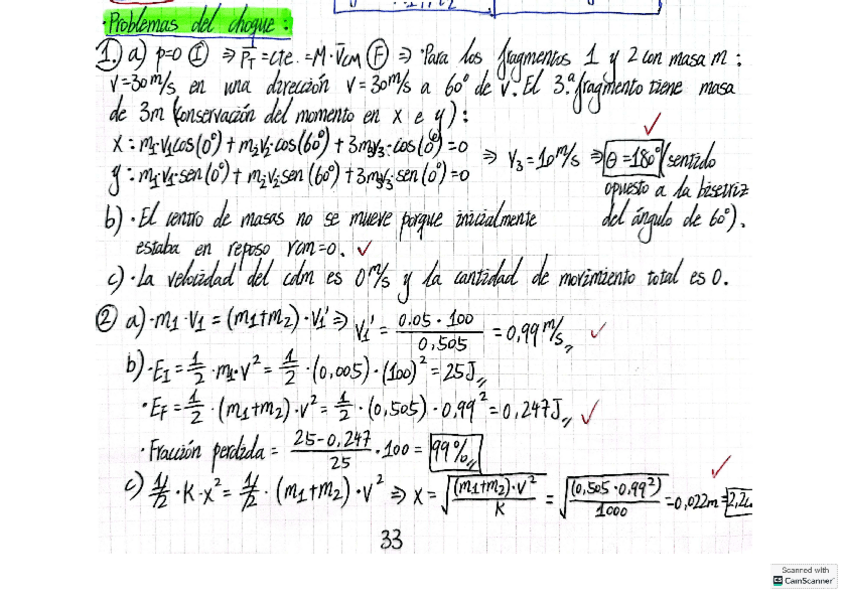 Problemas del choque:
1. a) p=0 (I) ⇒ P_T = cte. = M · V̄cm (F) ⇒ ·Para los fragmentos 1 y 2 con masa m:
v=30m/s en una dirección v=30m/s a 60° de v. El 3.ᵃ fragmento tiene masa
de 3m (conservación del momento en x e y):
x: m₁·v₁cos(0°) + m₂v₂·cos(60°) + 3m₃v₃·cos(0°) = 0
y: m₁·v₁·sen(0°) + m₂v₂sen(60°) + 3m₃v₃·sen(0°) = 0
⇒ v₃ = 10m/s ⇒ θ = 180° (sentido
opuesto a la bisetriz
del ángulo de 60°).
b) ·El centro de masas no se mueve porque inicialmente
estaba en reposo rcm=0. ✓
c) ·La velocidad del cdm es 0 m/s y la cantidad de movimiento total es 0.
2 a) ·m₁·v₁ = (m₁+m₂)·v₁' ⇒ v₁' = 0.05 · 100 / 0,505 = 0,99 m/s,, ✓
b) ·E_I = 1/2 · m₁·v² = 1/2 · (0,005)·(100)² = 25J,,
·E_F = 1/2 · (m₁+m₂)·v² = 1/2 · (0,505)·0,99² = 0,247J,, ✓
·Fracción perdida = 25-0,247 / 25 · 100 = 99%,,
c) 1/2 · K·x² = 1/2 · (m₁+m₂)·v² ⇒ x = √((m₁+m₂)·v² / K) = √((0,505·0,99²) / 1000) = 0,022m =
33
Scanned with
CS CamScanner